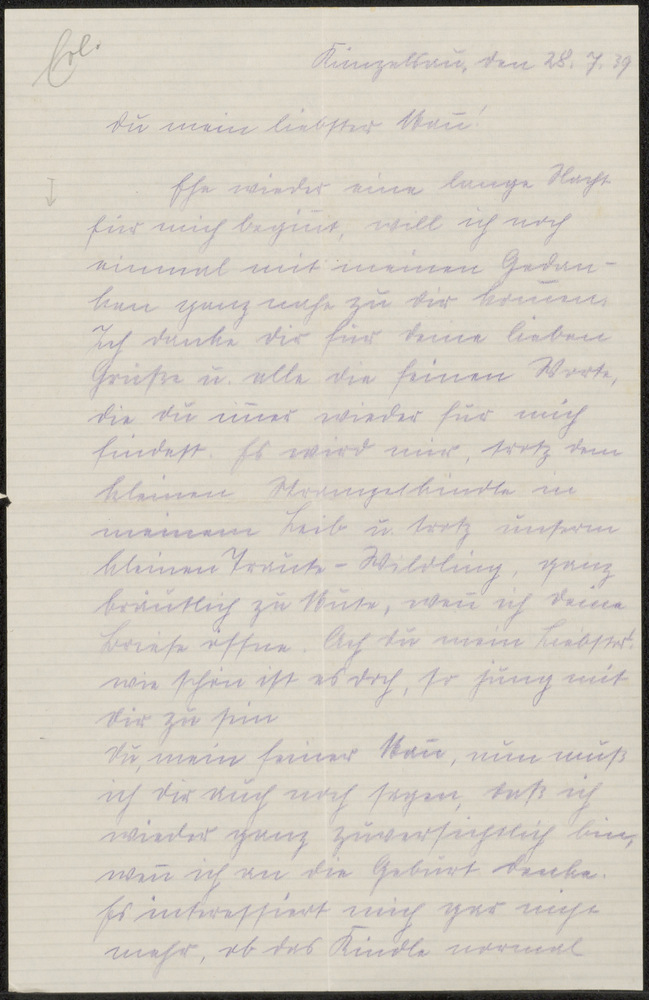 Erl.
Künzelsau, den 28. 7. 39
Du mein liebster Mañ!
Ehe wieder eine lange Nacht
für mich begiñt, will ich noch
einmal mit meinen Gedan-
ken ganz nahe zu Dir kom̄en.
Ich danke Dir für Deine lieben
Grüße u. alle die feinen Worte,
die Du im̄er wieder für mich
findest. Es wird mir, trotz dem
kleinen Strampelkindle in
meinem Leib u. trotz unserm
kleinen Traute-Wildling, ganz
bräutlich zu Mute, weñ ich Deine
Briefe öffne. Ach Du mein Liebster!
wie schön ist es doch, so jung mit
Dir zu sein
Du, mein feiner Mañ, nun muß
ich Dir auch noch sagen, daß ich
wieder ganz zuversichtlich bin,
weñ ich an die Geburt denke.
Es interessiert mich gar nicht
mehr, ob das Kindle normal